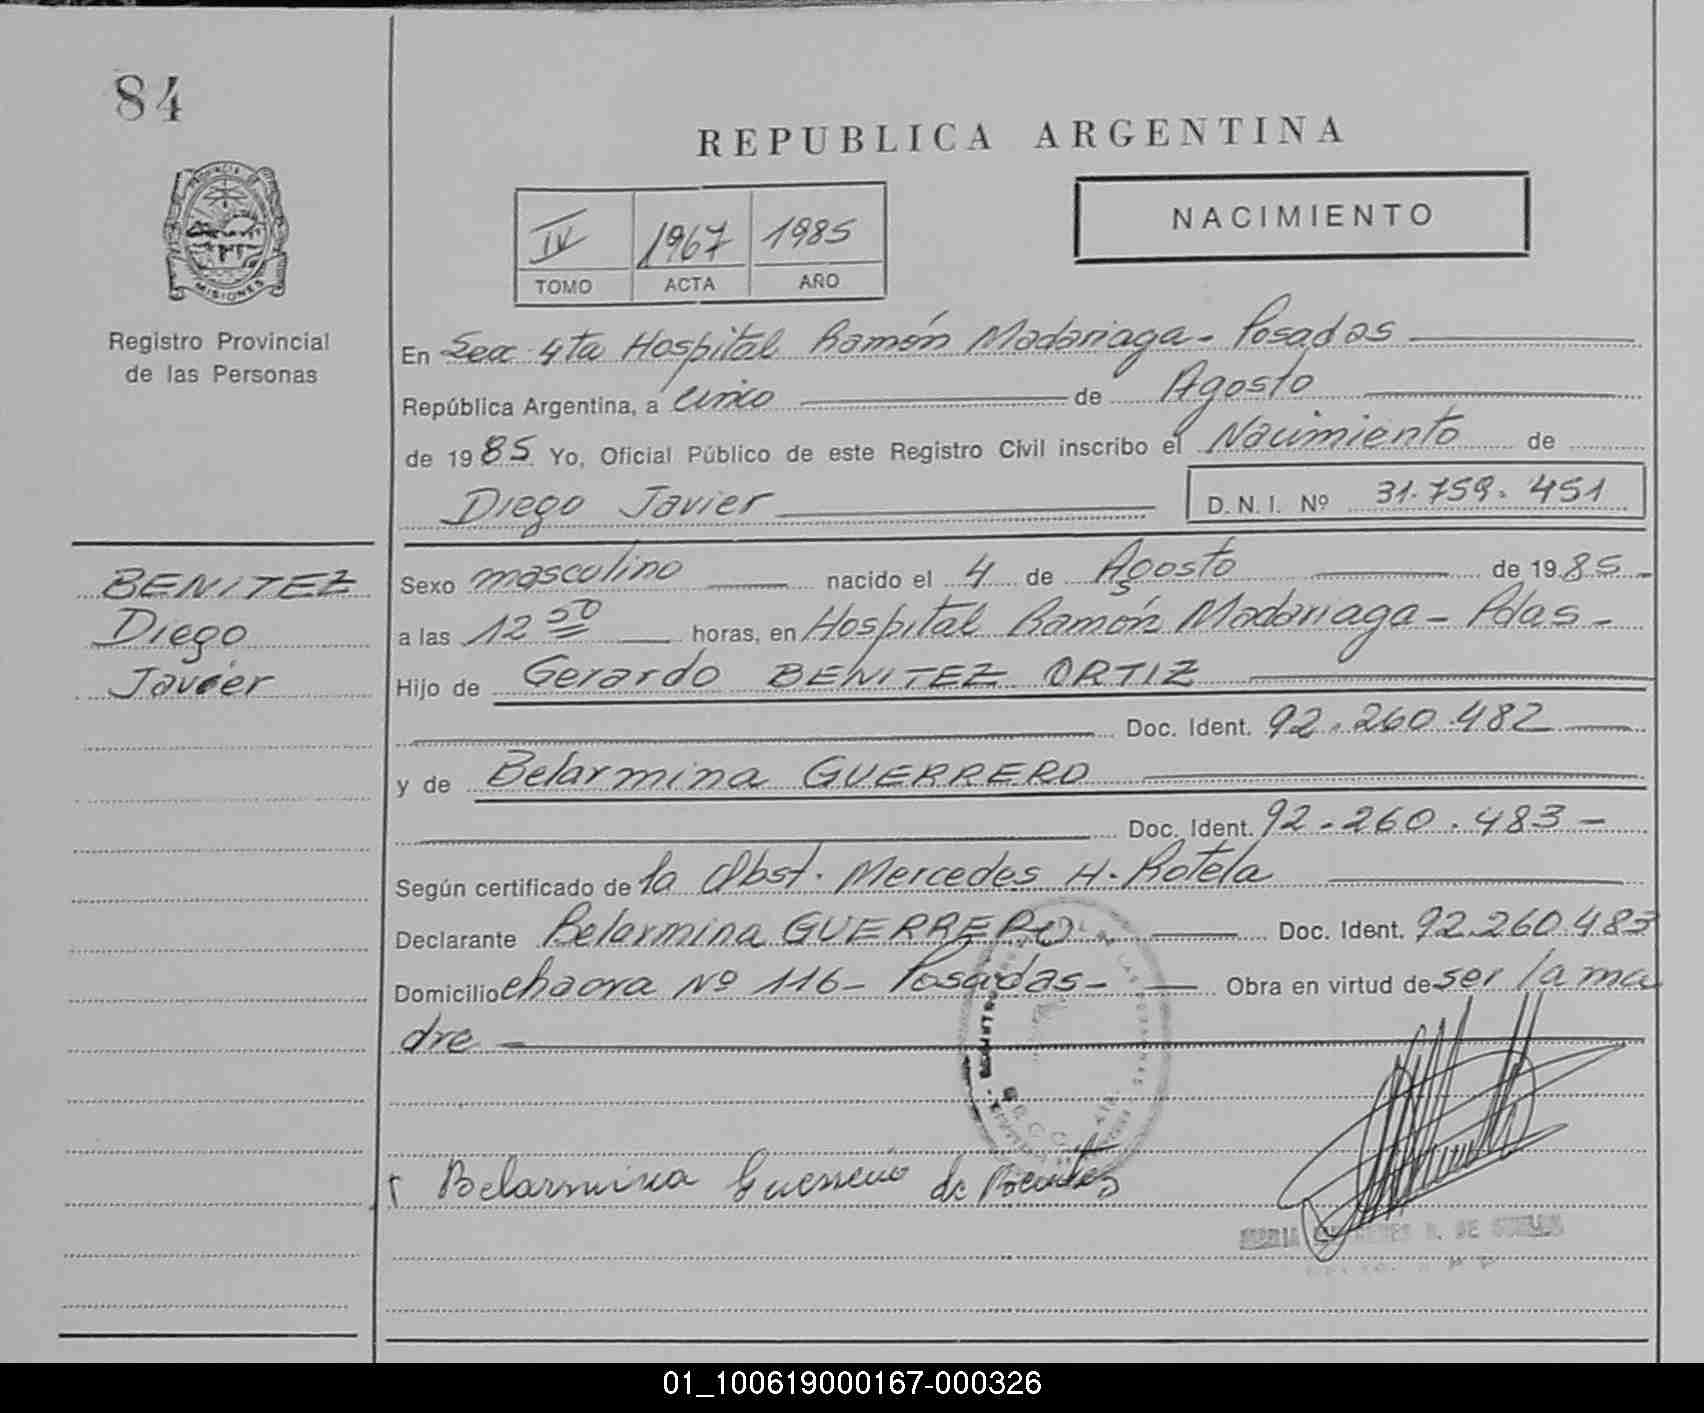 84
REPUBLICA ARGENTINA
PROVINCIA DE
MISIONES
NACIMIENTO
IV 1967 1985
TOMO ACTA AÑO
Registro Provincial
de las Personas
En Secc 4ta Hospital Ramón Madariaga - Posadas
República Argentina, a cinco de Agosto
de 1985 Yo, Oficial Público de este Registro Civil inscribo el Nacimiento de
Diego Javier D.N.I. Nº 31.759.451
BENITEZ
Diego
Javier
Sexo masculino nacido el 4 de Agosto de 1985
a las 12 50 horas, en Hospital Ramón Madariaga - Pdas -
Hijo de Gerardo BENITEZ ORTIZ
Doc. Ident. 92.260.482
y de Belarmina GUERRERO
Doc. Ident. 92.260.483 -
Según certificado de la Obst. Mercedes H. Rotela
Declarante Belarmina GUERRERO Doc. Ident. 92.260.483
Domicilio chacra Nº 116 - Posadas - Obra en virtud de ser la ma
dre
Belarmina Guerrero de
MARIA DE
01_100619000167-000326